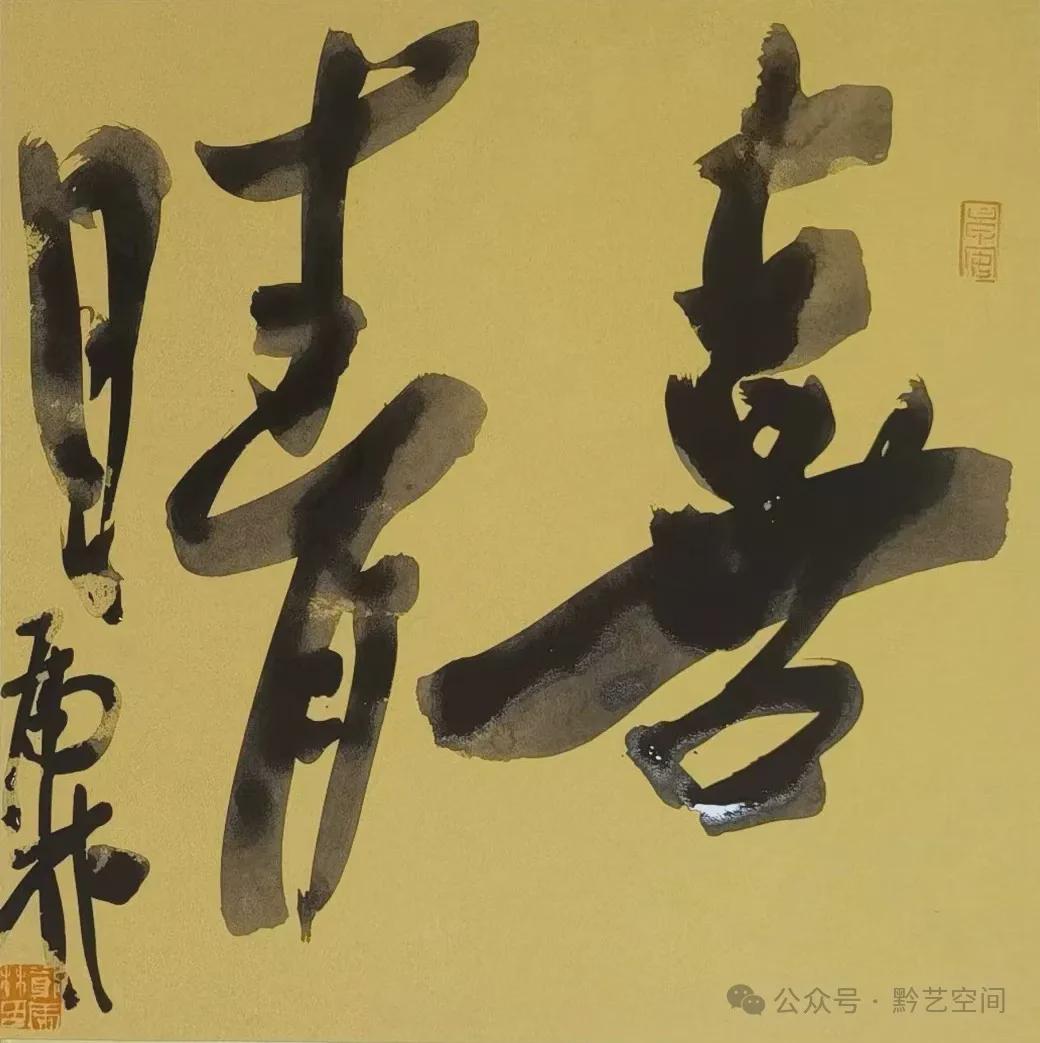 喜晴
雨林
公众号·黔艺空间